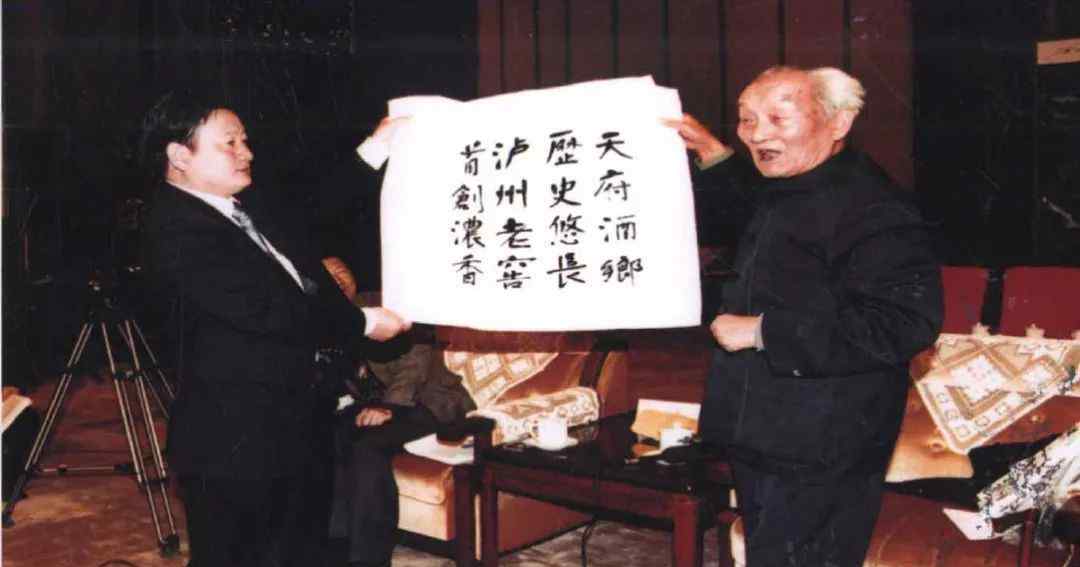 天府酒鄉
歷史悠長
泸州老窖
首創濃香